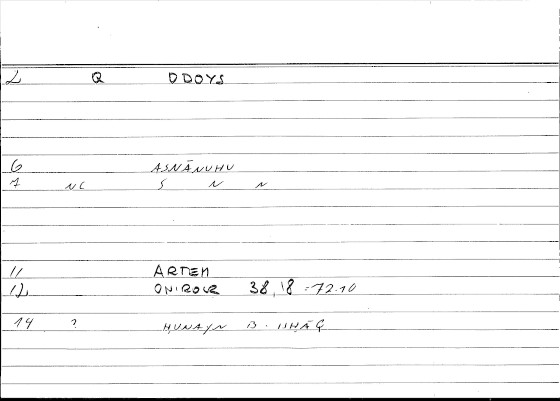 2 Q ODOYS
6 ASNĀNUHU
7 NC S N N
11 ARTEM
12 ONIROCR 38,18-72.10
14 ? ḤUNAYN B. IIḤĀQ